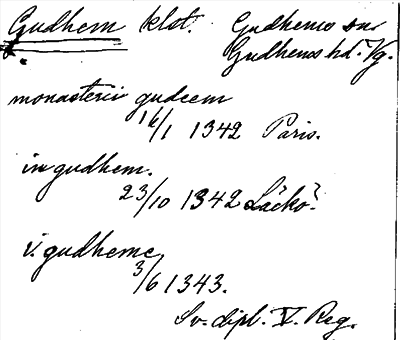 Gudhem klost. Gudhems sn
Gudhems hd. Vg.
monasterii gudeem
16/1 1342 Paris.
in gudhem.
23/10 1342 Läckö?
i. gudheme
3/6 1343.
Sv. dipl. V. Reg.